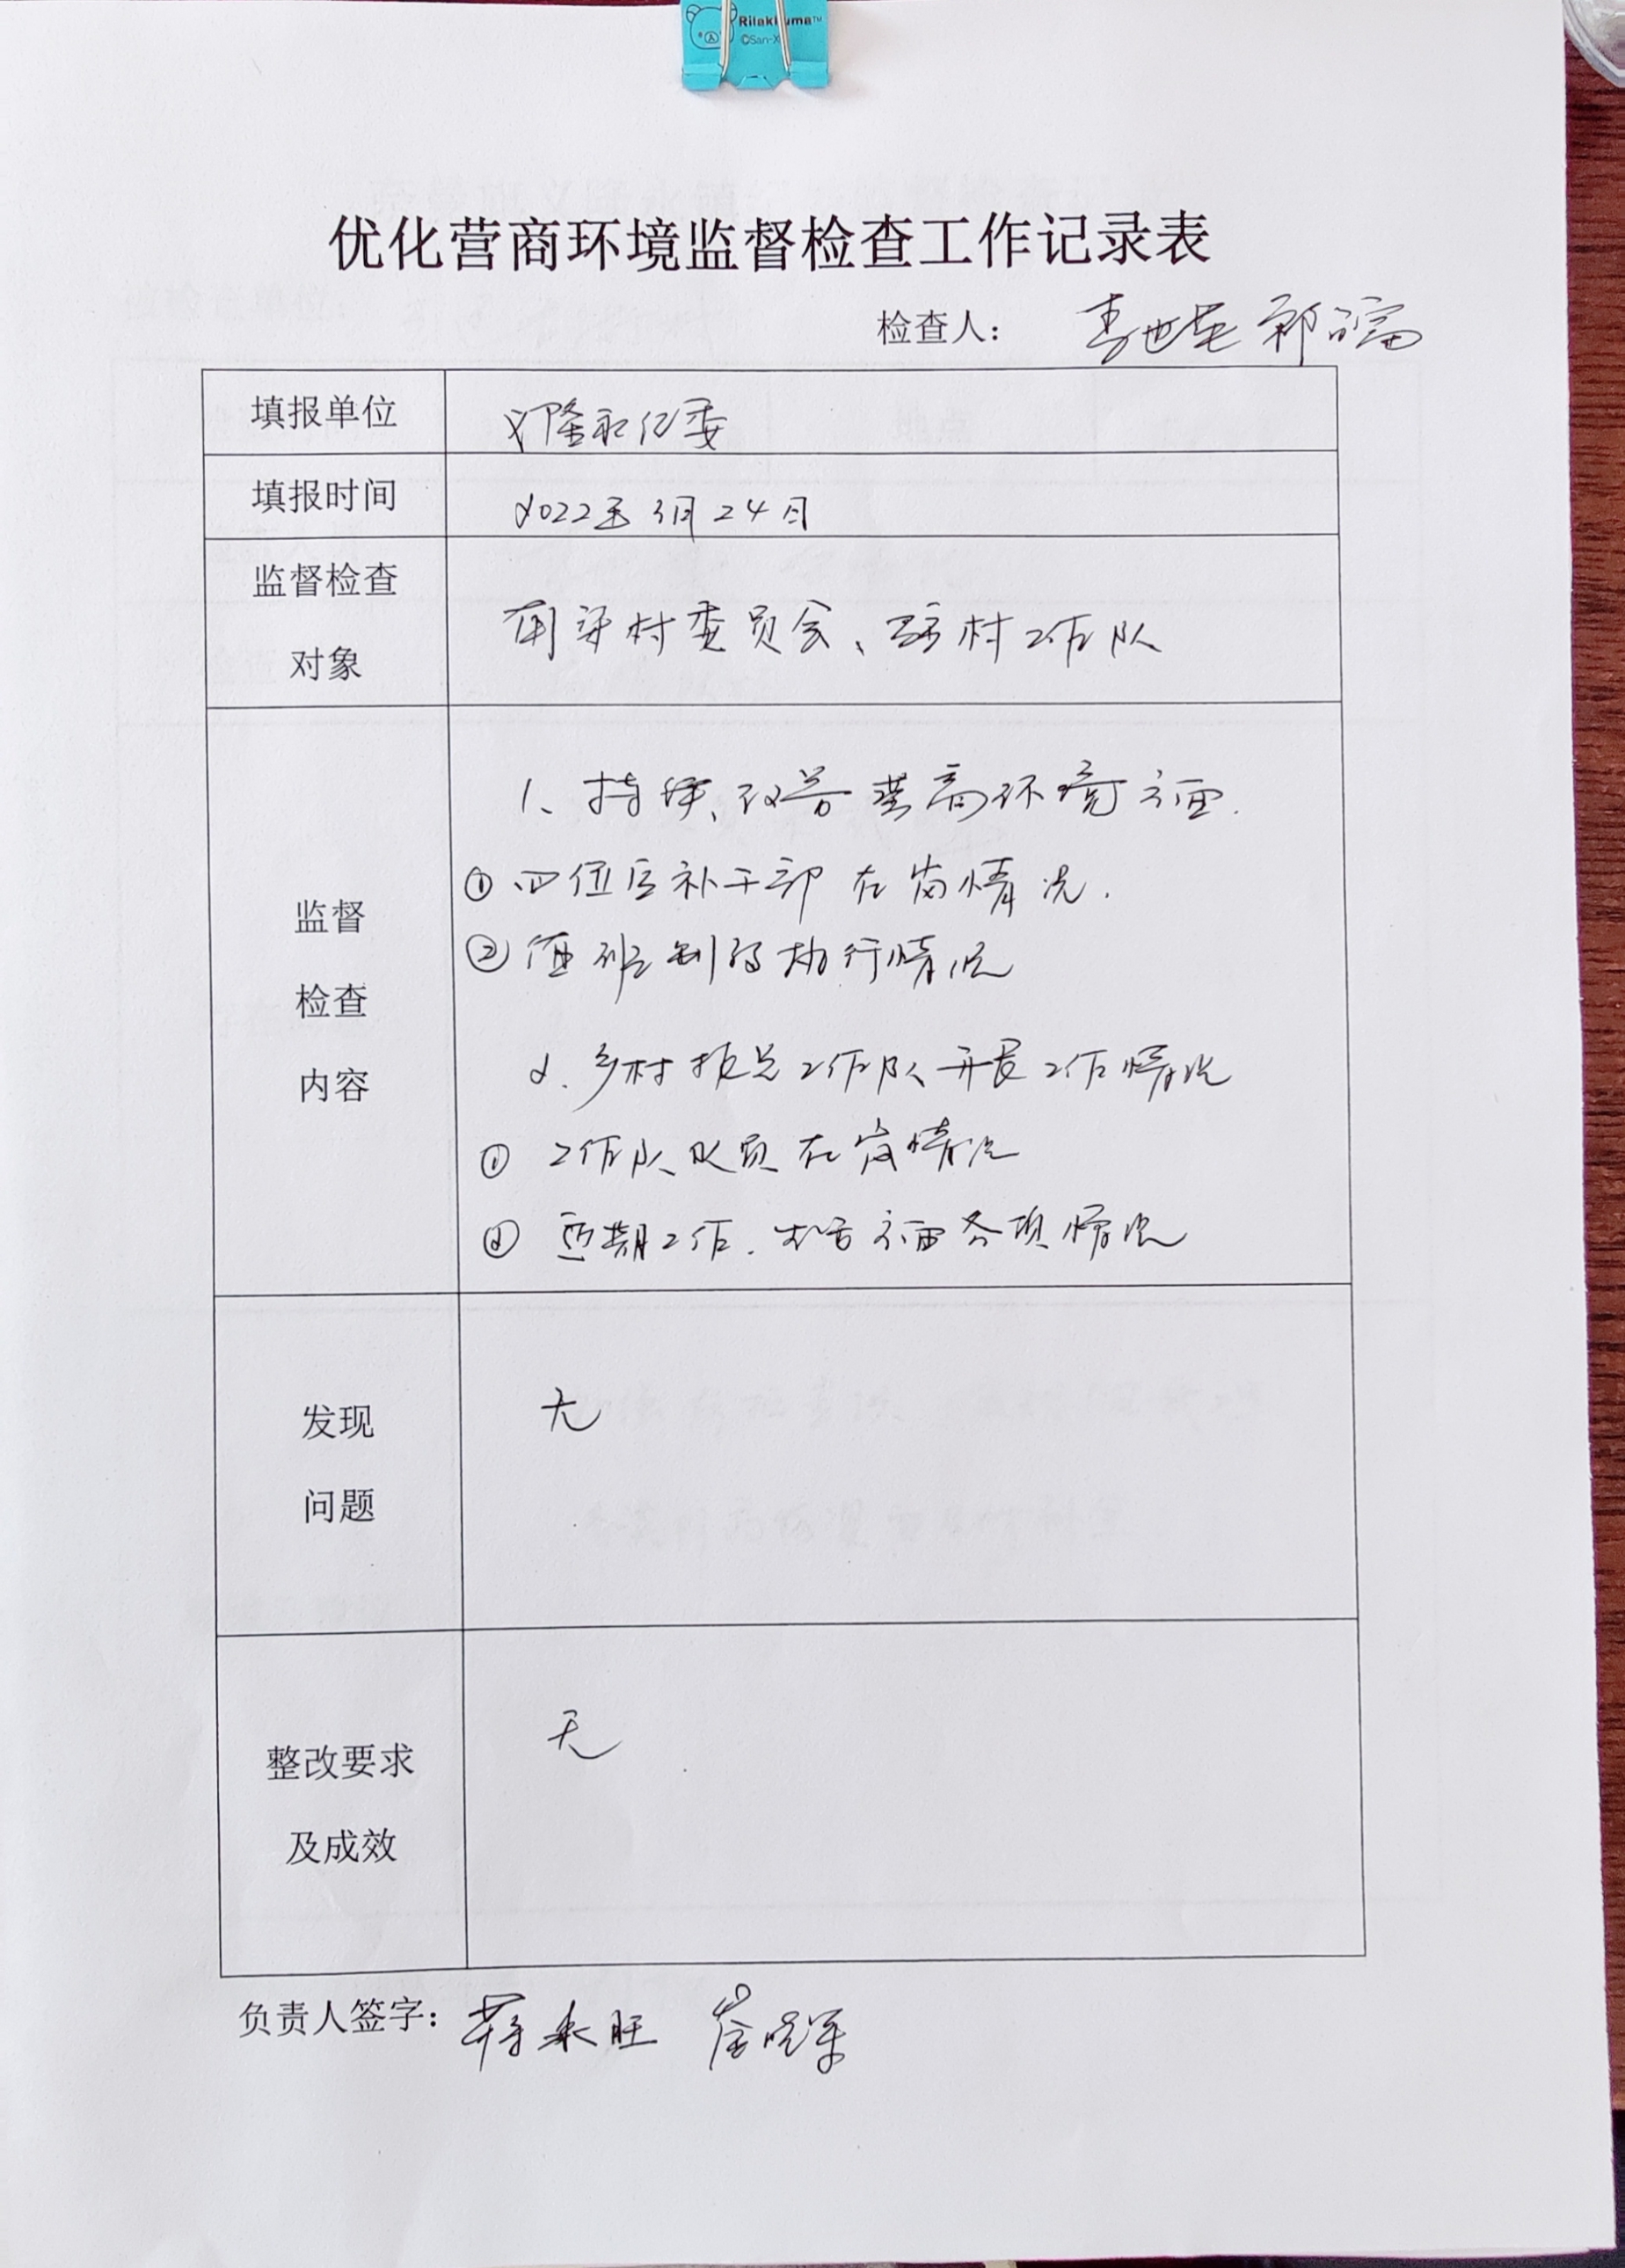 Rilakkuma™
©San-X
优化营商环境监督检查工作记录表
检查人：
填报单位 义隆永纪委
填报时间 2022年3月24日
监督检查
村委员会、驻村工作队
对象
1、持续改善营商环境方面.
①四位后补干部在岗情况.
监督
②值班制的执行情况
检查
2.乡村振兴工作队开展工作情况
内容
① 工作队队员在岗情况
② 近期工作.生活方面各项情况
发现 无
问题
无
整改要求
及成效
负责人签字：蒋永旺 崔晓军